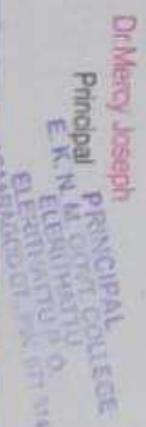 Dr. Mercy Joseph
Principal
PRINCIPAL
E. K. N. M. GOVT. COLLEGE
ELERITHATTU
ELERITHATTU P. O.